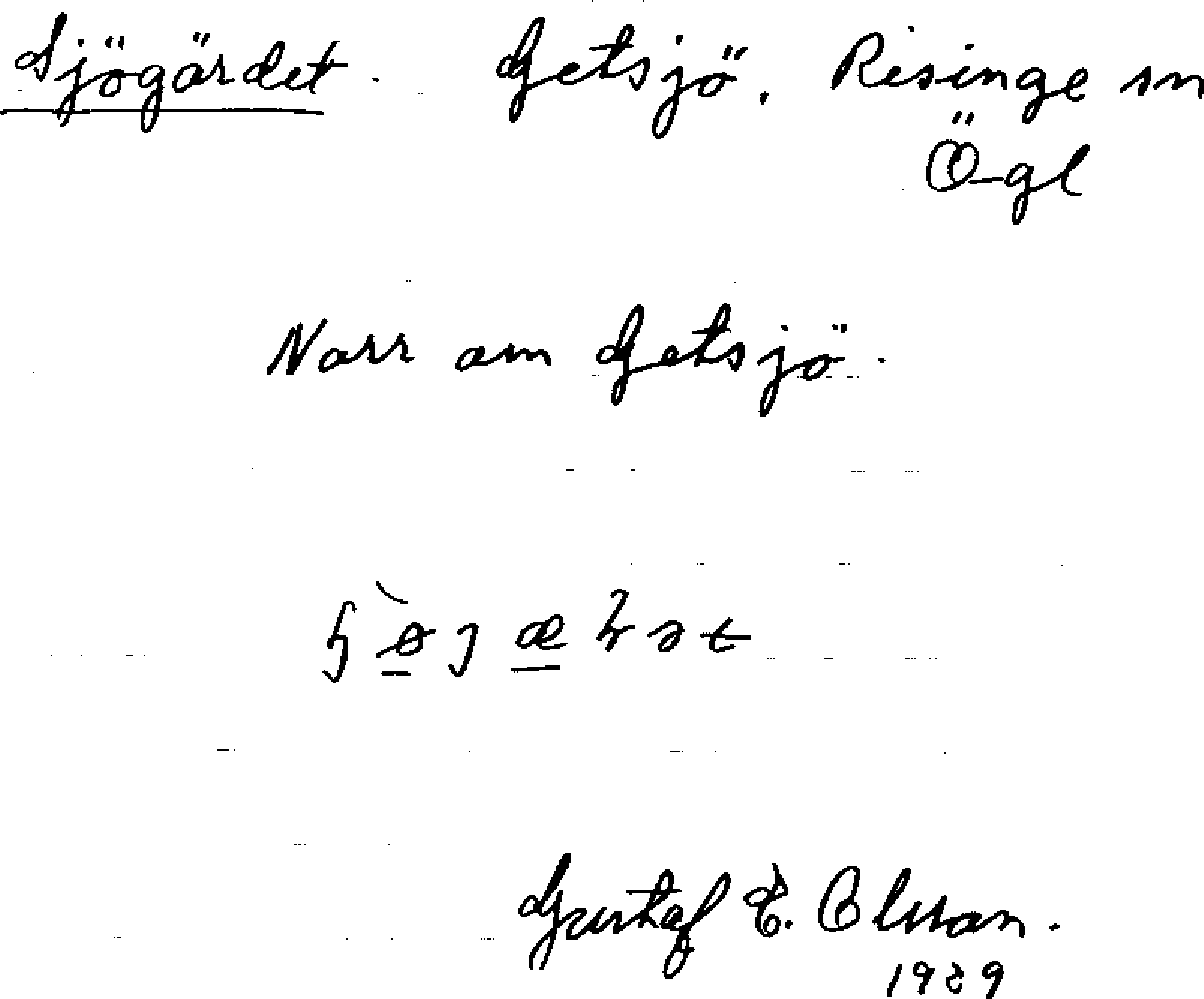 Sjögärdet. Getsjö, Risinge sn
Ögl
Norr om Getsjö.
Gustaf E. Olsson.
1929